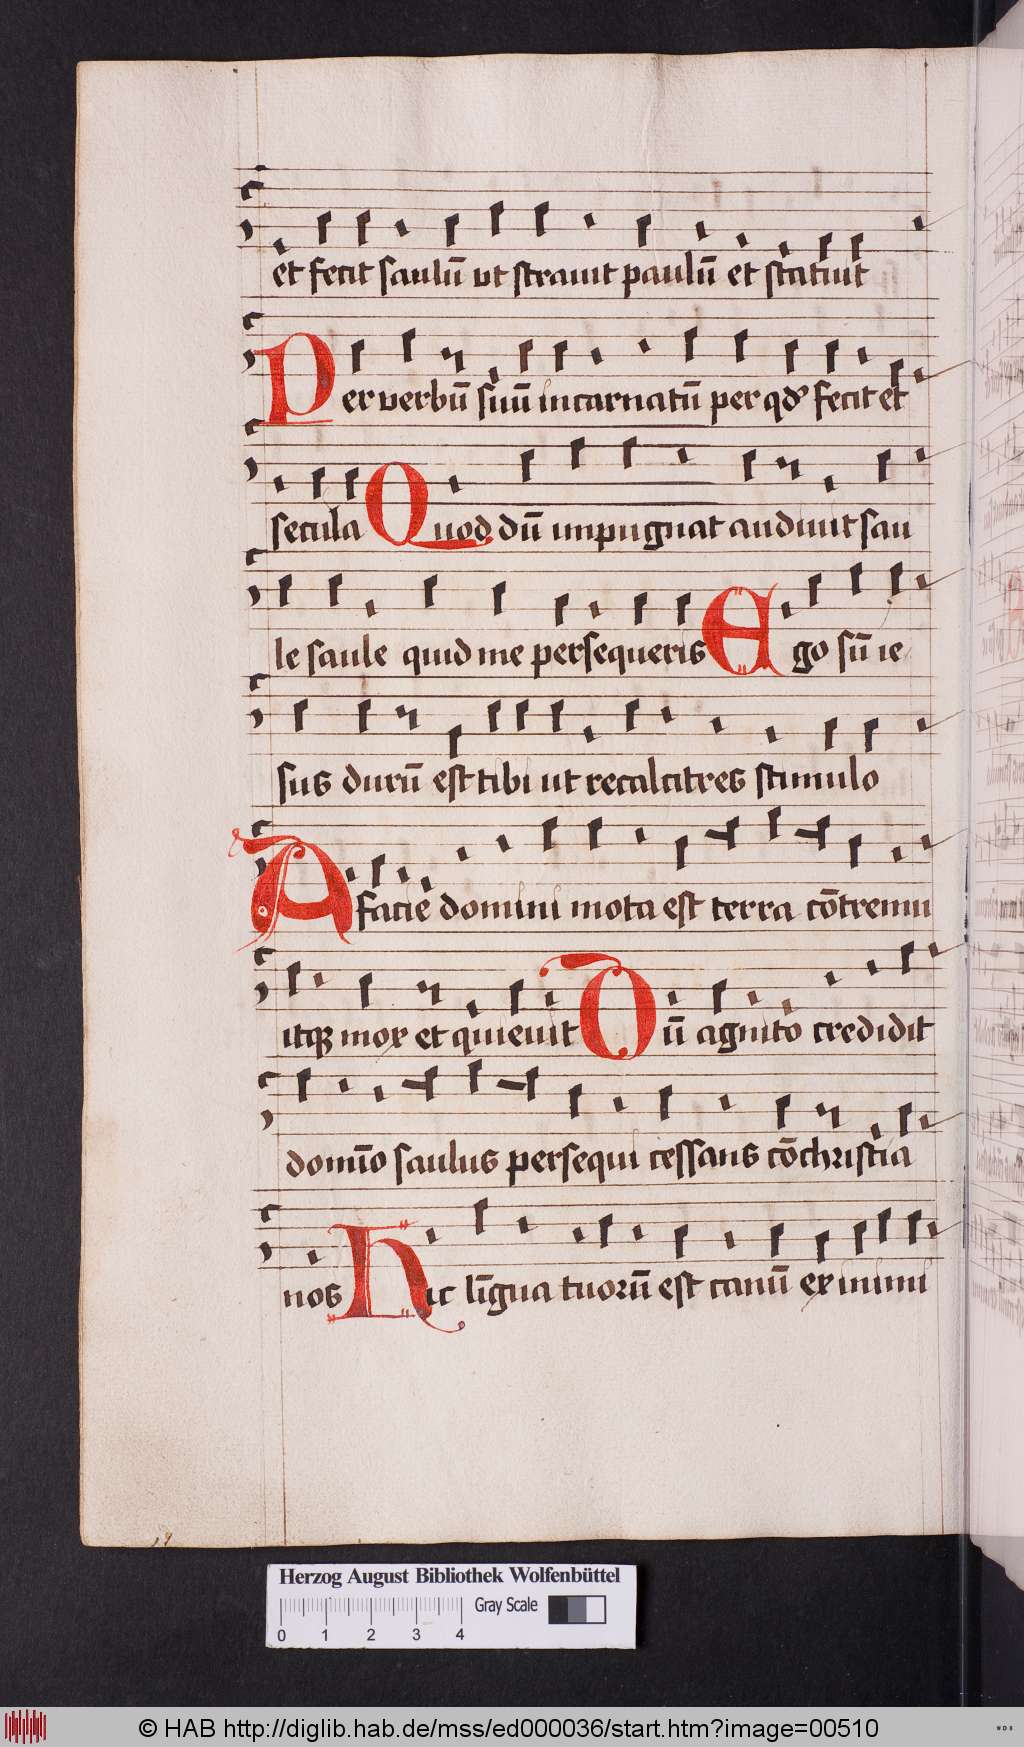 et fecit saulū ut strauit paulū et statuit
Per verbū suū incarnatū per qd' fecit et
secula Quod dū impugnat audiuit sau
le saule quid me persequeris Ego sū ie
sus durū est tibi ut recalcitres stimulo
A facie domini mota est terra cōtremu
itqꝫ mox et quieuit Dū agnito credidit
domīo saulus persequi cessans cōchristia
nos Hic līgua tuorū est canū ex inimi
Herzog August Bibliothek Wolfenbüttel
Gray Scale
0 1 2 3 4
© HAB http://diglib.hab.de/mss/ed000036/start.htm?image=00510